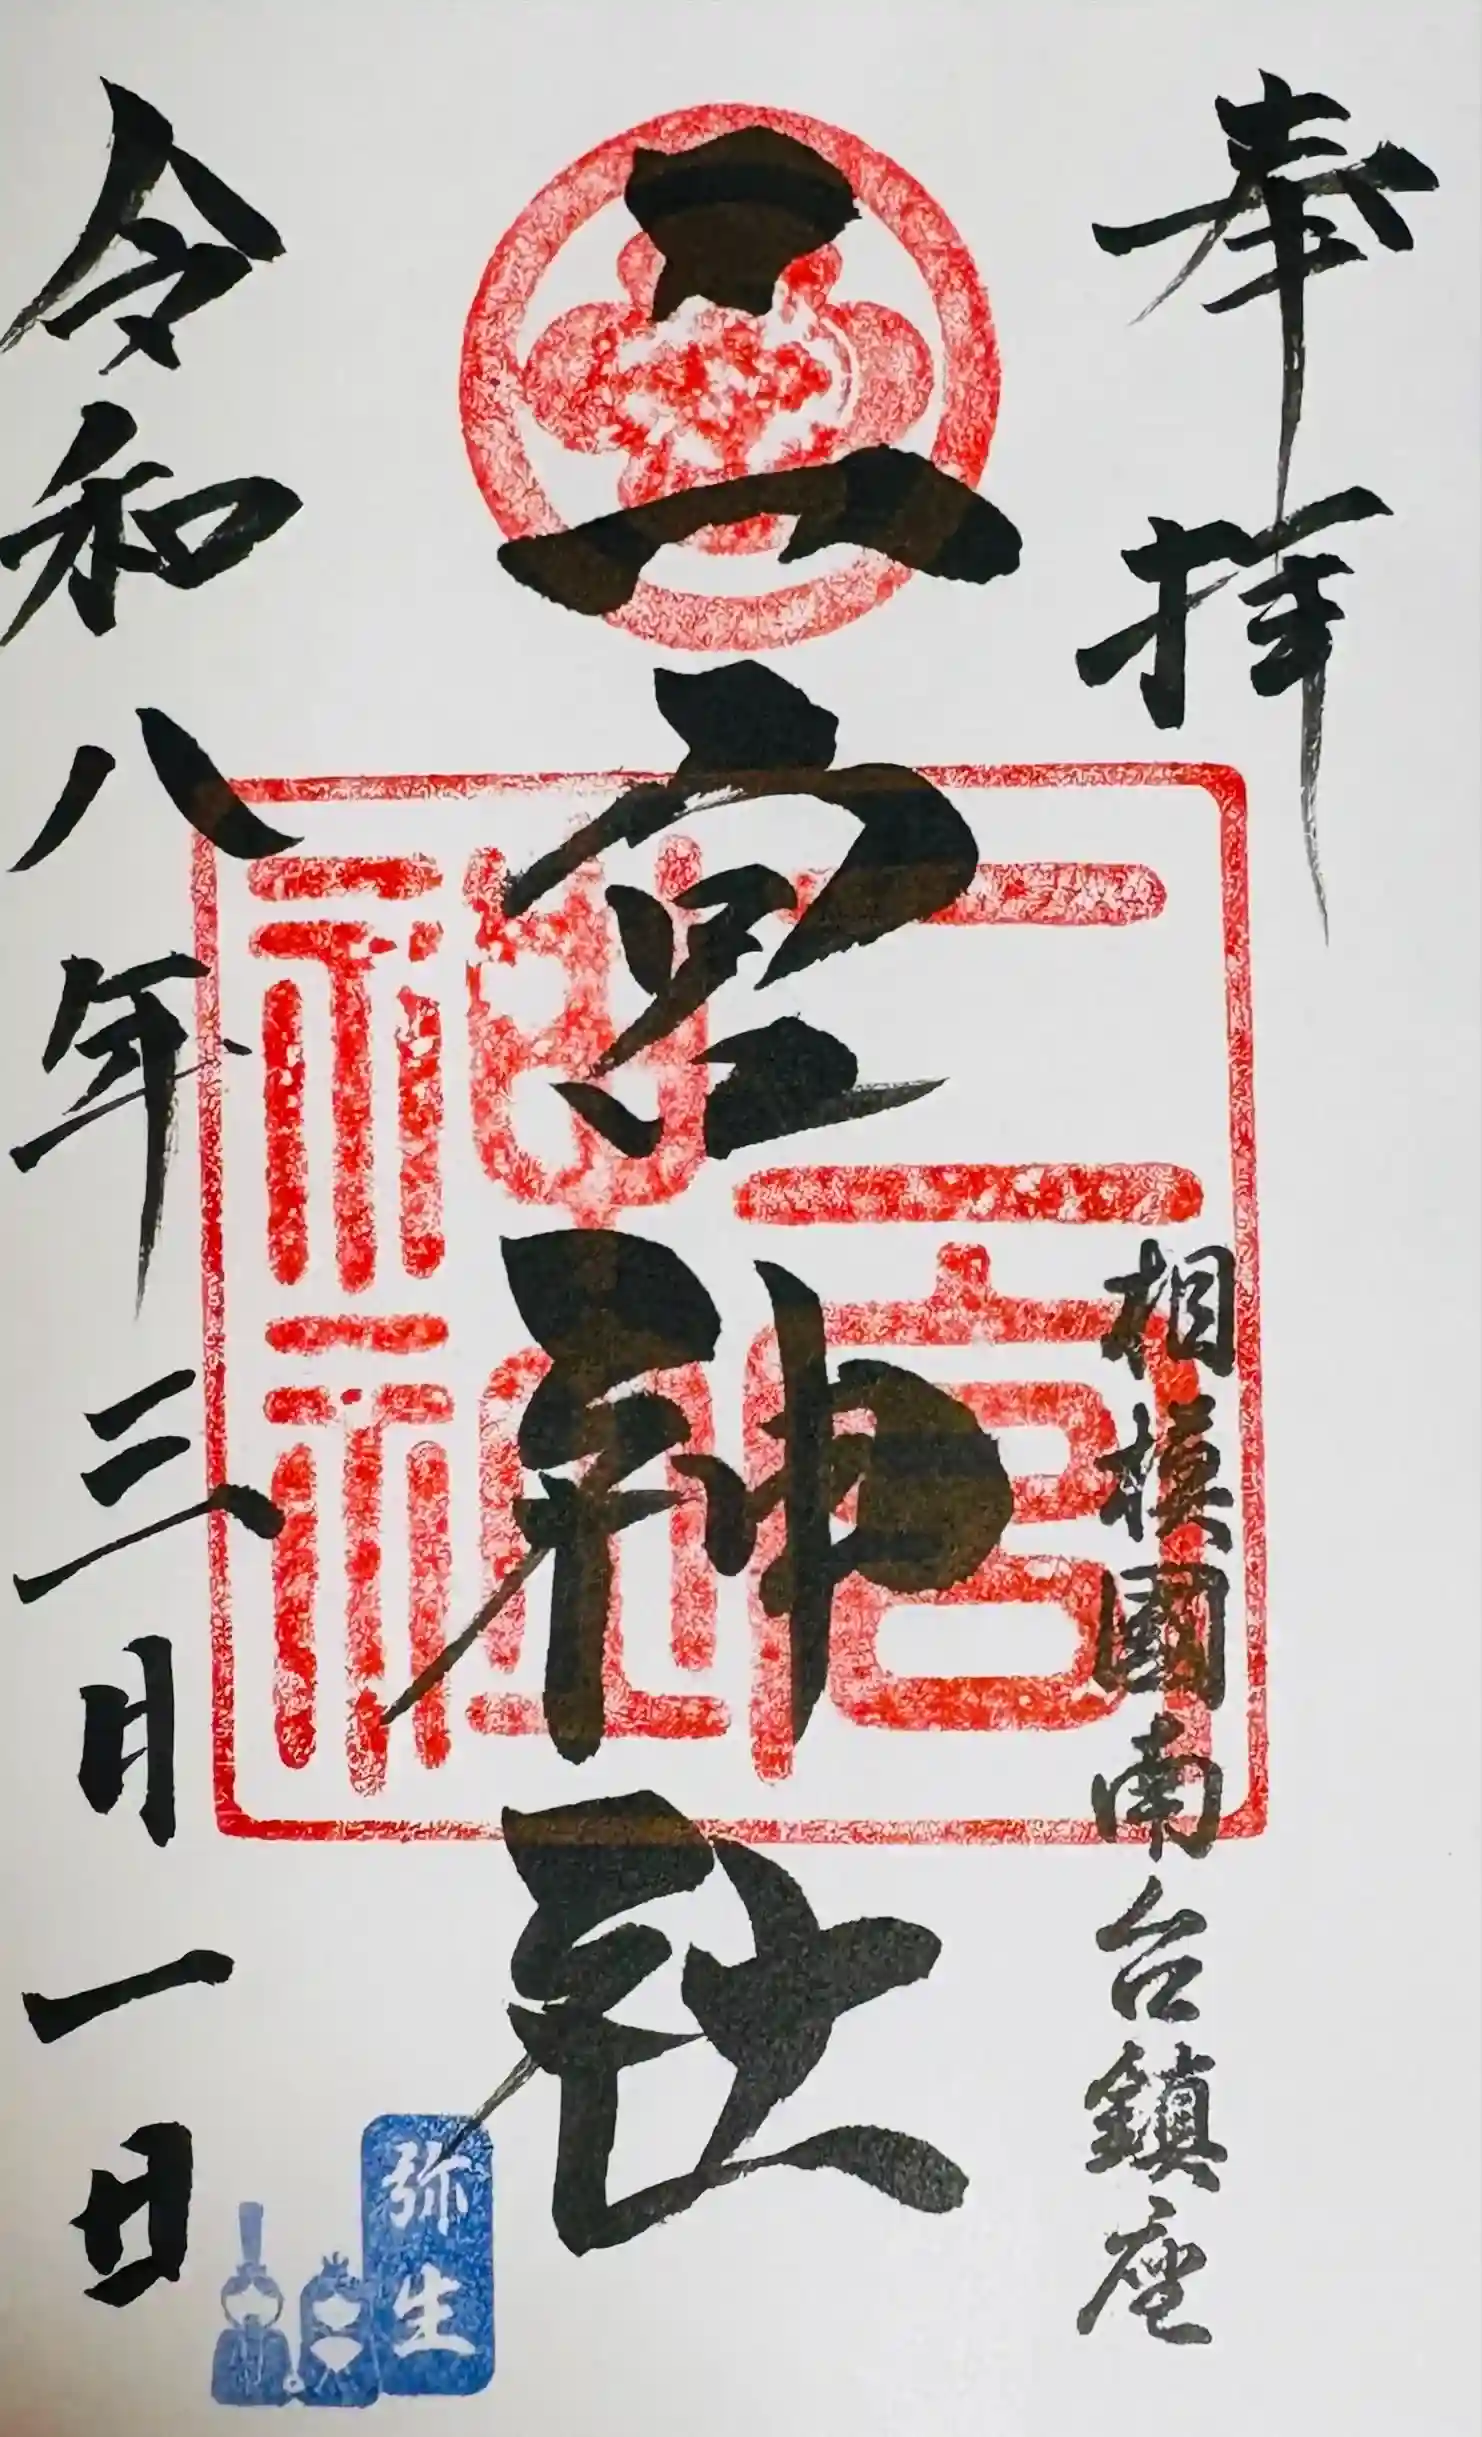 奉拝
相模國南台鎮座
二宮神社
二宮
神社
令和八年三月一日
弥生